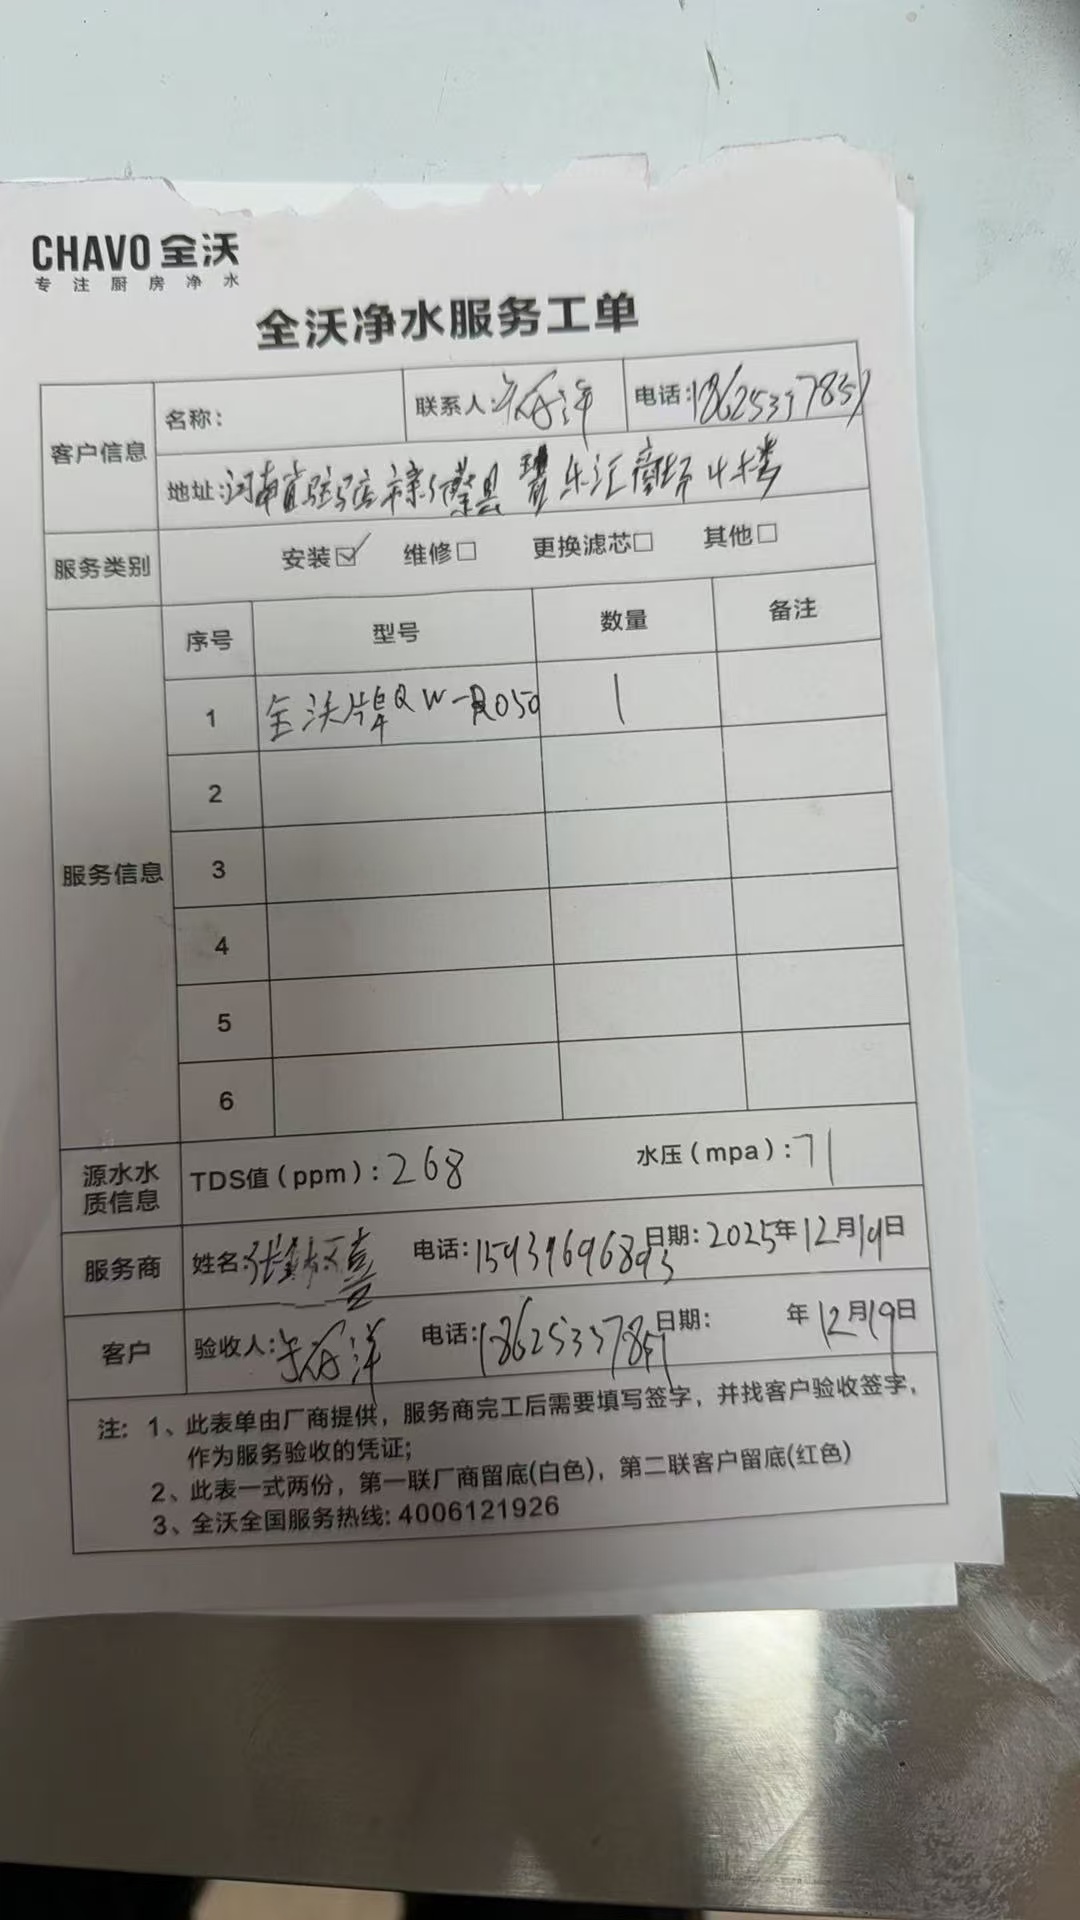 CHAVO 全沃
专注厨房净水
全沃净水服务工单
客户信息
名称:
联系人: 海洋
电话: 18625337851
地址: 河南省驻马店市新蔡县 乐汇商场 4楼
服务类别
安装☑ 维修□ 更换滤芯□ 其他□
服务信息
序号 型号 数量 备注
1 全沃牌QW-RO50 1
2
3
4
5
6
源水水质信息
TDS值(ppm): 268 水压(mpa): 71
服务商
姓名: 张 喜 电话: 15939696893 日期: 2025年12月19日
客户
验收人: 海洋 电话: 18625337851 日期: 年12月19日
注: 1、此表单由厂商提供, 服务商完工后需要填写签字, 并找客户验收签字,
作为服务验收的凭证;
2、此表一式两份, 第一联厂商留底(白色), 第二联客户留底(红色)
3、全沃全国服务热线: 4006121926